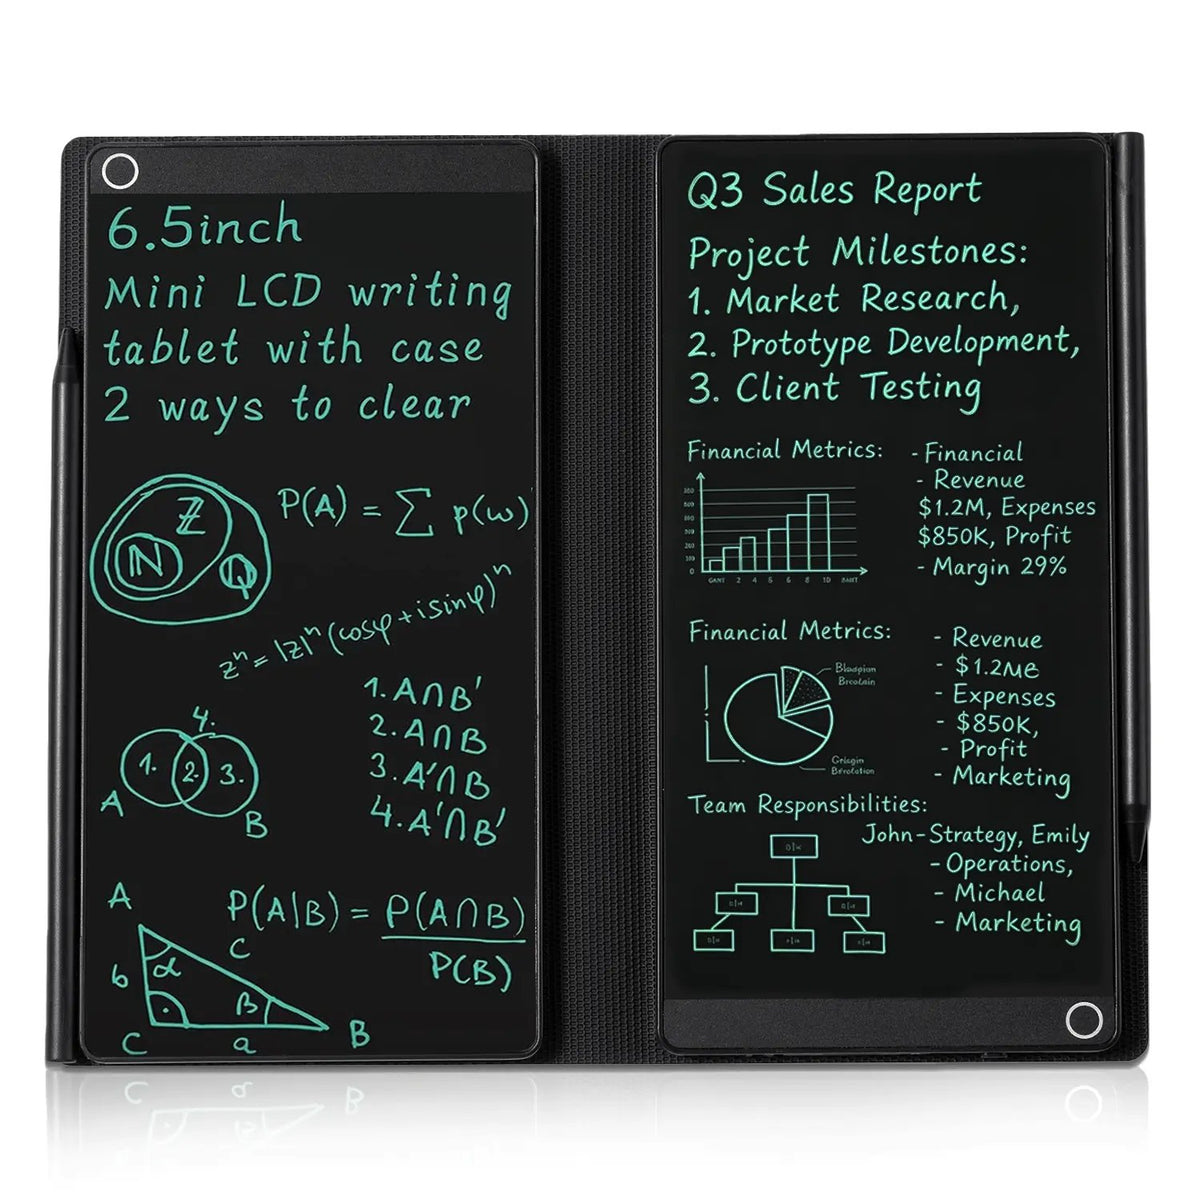 6.5inch
Mini LCD writing
tablet with case
2 ways to clear
Z
N
Q
P(A) = ∑ p(ω)
zⁿ = |z|ⁿ (cosφ + i sinφ)ⁿ
4.
1. 2. 3.
A
B
1. A∩B'
2. A∩B
3. A'∩B
4. A'∩B'
P(A|B) = P(A∩B)
P(B)
A
b
α
C
β
C
a
B
Q3 Sales Report
Project Milestones:
1. Market Research,
2. Prototype Development,
3. Client Testing
Financial Metrics:
- Financial
- Revenue
$1.2M, Expenses
$850K, Profit
- Margin 29%
2 4 5 6 8 10
Financial Metrics:
- Revenue
- $1.2ME
- Expenses
- $850K,
- Profit
- Marketing
Team Responsibilities:
John-Strategy, Emily
- Operations,
- Michael
- Marketing